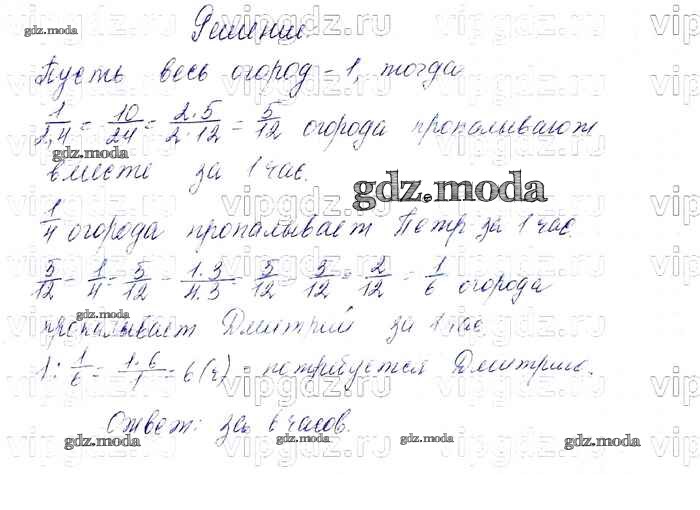 Решение.
Пусть весь огород - 1, тогда
1/2,4 = 10/24 = 2·5/2·12 = 5/12 огорода пропалывают
вместе за 1 час.
1/4 огорода пропалывает Петр за 1 час.
5/12 - 1/4 = 5/12 - 1·3/4·3 = 5/12 - 3/12 = 2/12 = 1/6 огорода
пропалывает Дмитрий за 1 час
1 : 1/6 = 1·6/1 = 6 (ч) - потребуется Дмитрию.
Ответ: за 6 часов.
gdz.moda
vipgdz.ru